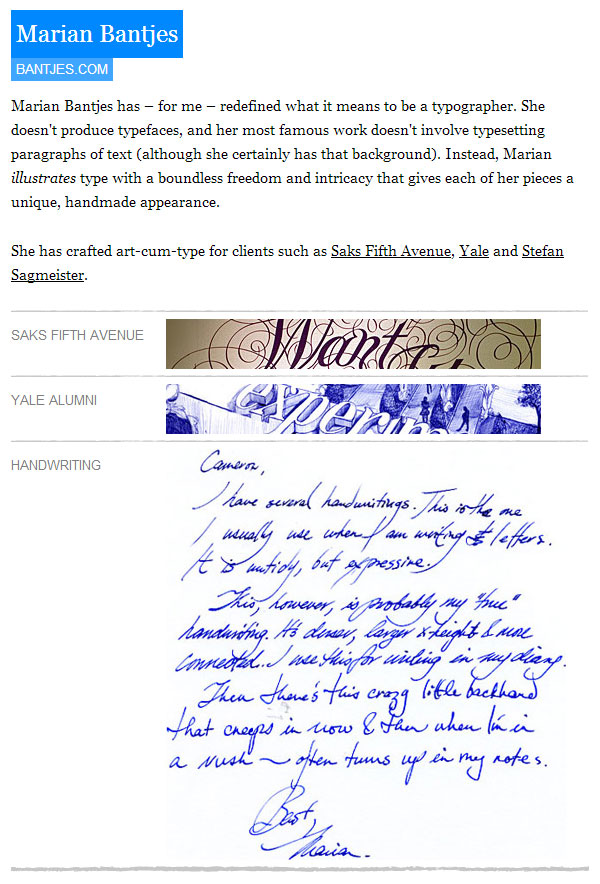 Marian Bantjes
BANTJES.COM
Marian Bantjes has – for me – redefined what it means to be a typographer. She
doesn't produce typefaces, and her most famous work doesn't involve typesetting
paragraphs of text (although she certainly has that background). Instead, Marian
illustrates type with a boundless freedom and intricacy that gives each of her pieces a
unique, handmade appearance.
She has crafted art-cum-type for clients such as Saks Fifth Avenue, Yale and Stefan
Sagmeister.
SAKS FIFTH AVENUE
Want
YALE ALUMNI
HANDWRITING
Cameron,
I have several handwritings. This is the one
I usually use when I am writing letters.
It is untidy, but expressive.
This, however, is probably my "true"
handwriting. It's denser, larger x-height & more
connected.. I use this for writing in my diary.
Then there's this crazy little backhand
that creeps in now & then when I'm in
a rush ~ often turns up in my notes.
Best,
Marian.